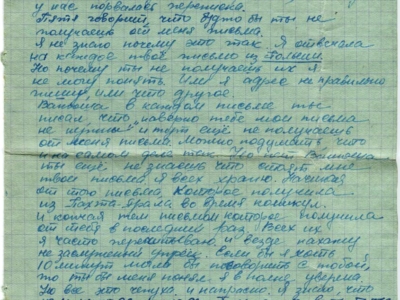 у нас порвалась переписка.
Петя говорит, что будто бы ты не
получаешь от меня письма.
Я не знаю почему это так. Я отвечала
на каждое твоё письмо из Польши
Но почему ты не получаешь их я
не могу понять. Или я адрес не правильно
пишу, или что другое.
в каждом письме ты
писал, что наверно тебе мои письма
не нужны и тут ещё не получаешь
от меня письма. Можно подумать что
и на самом деле так. Но нет
ты ещё не знаешь что стоят мне
твои письма я всех храню. Начиная
от того письма, которое получила
из во время каникул.
и кончая тем письмом которое получила
от тебя в последний раз. Всех их
я часто перечитываю и везде нахожу
не заслуженный упрёк. Если бы я хоть
10 минут могла бы поговорить с тобой,
то ты бы меня понял, я в полне уверена
Но все это чепуха, и напрасно. Я знаю, что